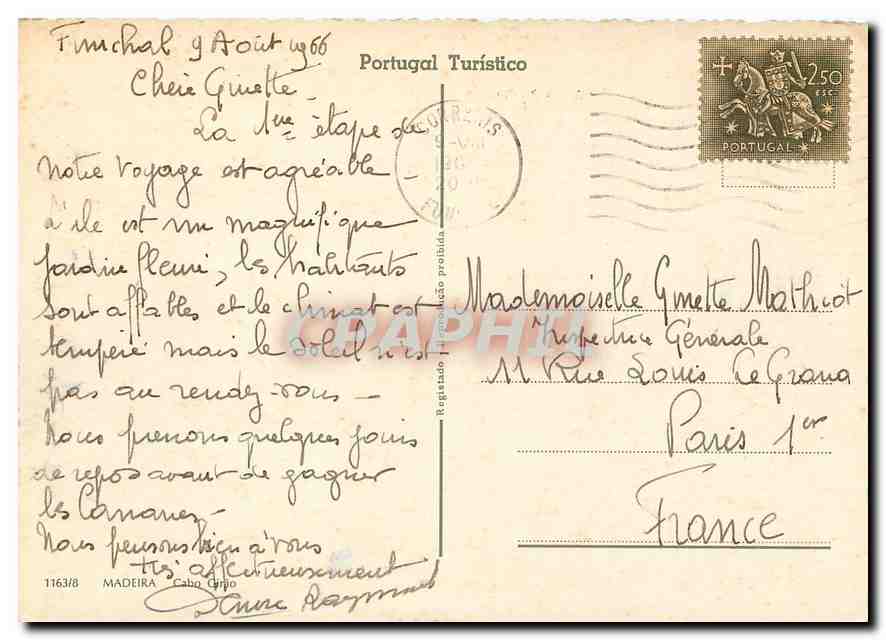 Funchal 9 Août 1966
Portugal Turístico
Chère Ginette _
La 1ère étape de
notre voyage est agréable _
L'île est un magnifique
jardin fleuri, les habitants
sont affables et le climat est
tempéré mais le soleil n'est
pas au rendez-vous _
Nous prenons quelques jours
de repos avant de gagner
les Canaries _
Nous pensons bien à vous
très affectueusement
Raymond
1163/8 MADEIRA Cabo Girão
Registado Reprodução proibida
CORREIOS
2$50
ESC.
PORTUGAL
Mademoiselle Ginette Mathiot
Inspectrice Générale
11 Rue Louis Le Grand
Paris 1er
France
CPAPHIL